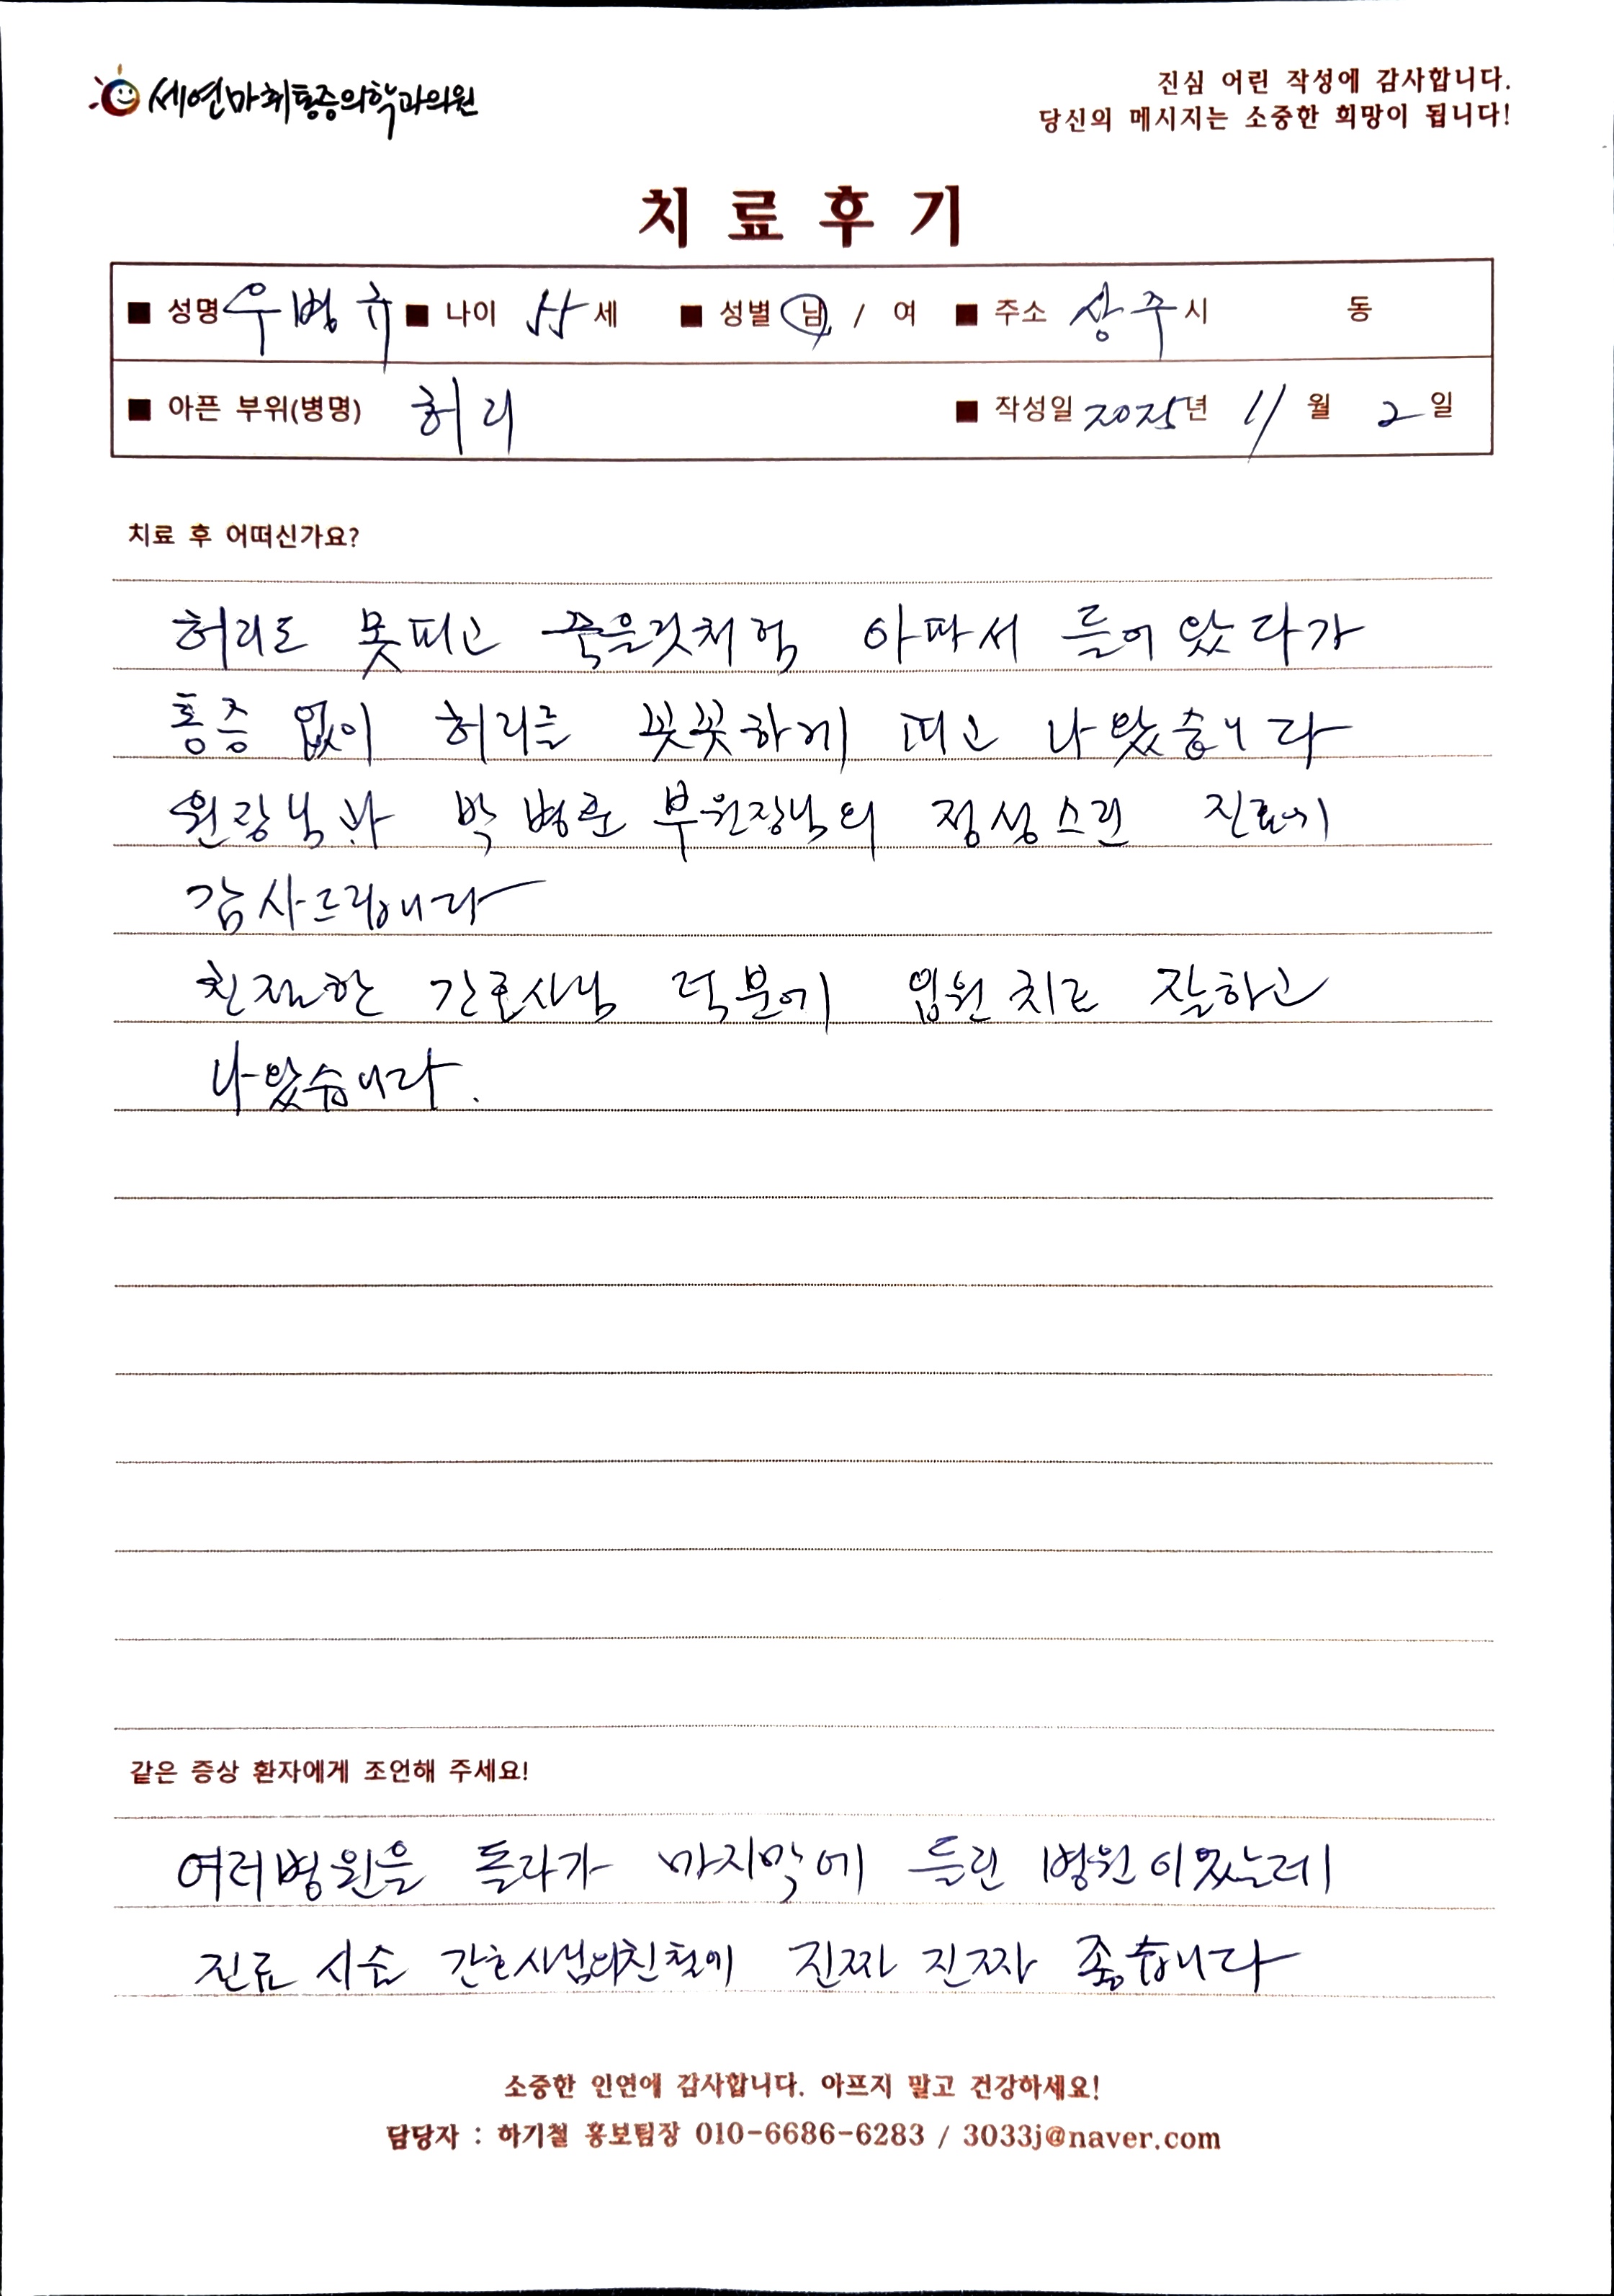 세연마취통증의학과의원
진심 어린 작성에 감사합니다.
당신의 메시지는 소중한 희망이 됩니다!
치료후기
■ 성명 우병규 ■ 나이 55 세 ■ 성별 남 / 여 ■ 주소 상주 시 동
■ 아픈 부위(병명) 허리 ■ 작성일 2025년 11 월 2 일
치료 후 어떠신가요?
허리도 못피고 죽을것처럼 아파서 들어왔다가
통증 없이 허리를 꼿꼿하게 피고 나왔습니다
원장님과 박병훈 부원장님의 정성스린 진료에
감사드립니다
친절한 간호사님 덕분에 입원치료 잘하고
나왔습니다.
같은 증상 환자에게 조언해 주세요!
여러병원을 돌다가 마지막에 들린 병원이었는데
진료 시술 간호사님의친절에 진짜 진짜 좋습니다
소중한 인연에 감사합니다. 아프지 말고 건강하세요!
담당자 : 하기철 홍보팀장 010-6686-6283 / 3033j@naver.com